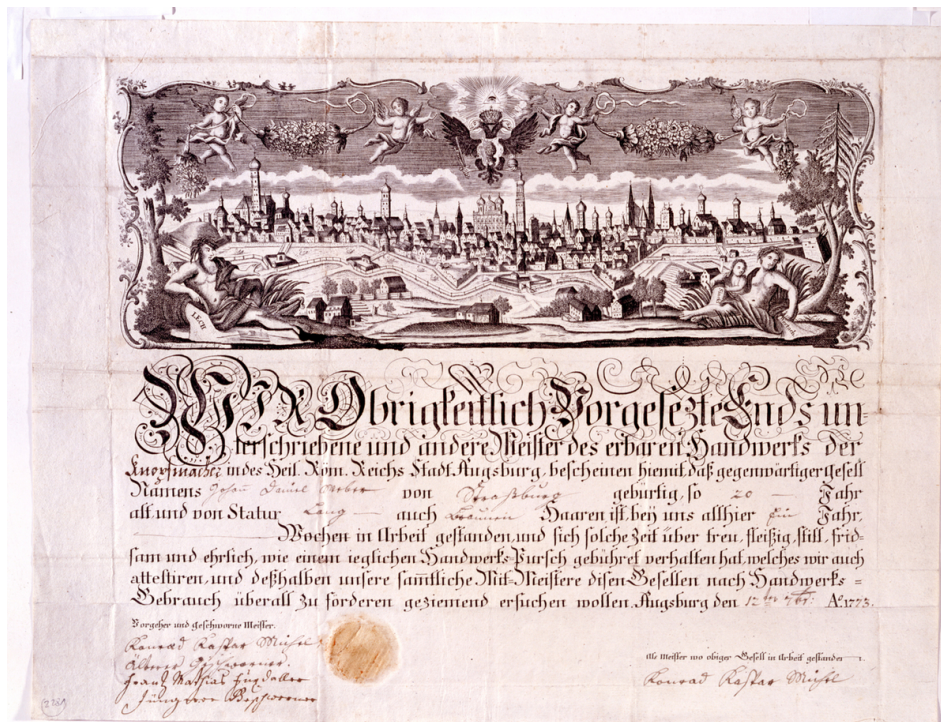 LECH
WIR Obrigkeitlich Vorgesezte Ends un-
terschriebene und andere Meister des erbaren Handwerks der
Knopfmacher in des Heil. Röm. Reichs Stadt Augsburg, bescheinen hiemit, daß gegenwärtiger gesell
Namens Johann Daniel von Straßburg gebürtig, so 20 Jahr
alt und von Statur Lang auch Braunen Haaren ist, bey uns allhier Ein Jahr,
Wochen in Arbeit gestanden, und sich solche Zeit über treu, fleißig, still, frid-
sam und ehrlich, wie einem ieglichen Handwerks-Pursch gebühret verhalten hat, welches wir auch
attestiren, und deßhalben unsere samtliche Mit-Meistere disen Gesellen nach Handwerks=
Gebrauch überall zu förderen geziemend ersuchen wollen. Augsburg den 12ten Aº. 1773.
Vorgeher und geschworne Meister.
Konrad Kaspar Michel
Älterer Geschworner.
Als Meister wo obiger Gesell in Arbeit gestanden
Frantz Mathias
Konrad Kaspar Michel
Jüngerer Geschworner